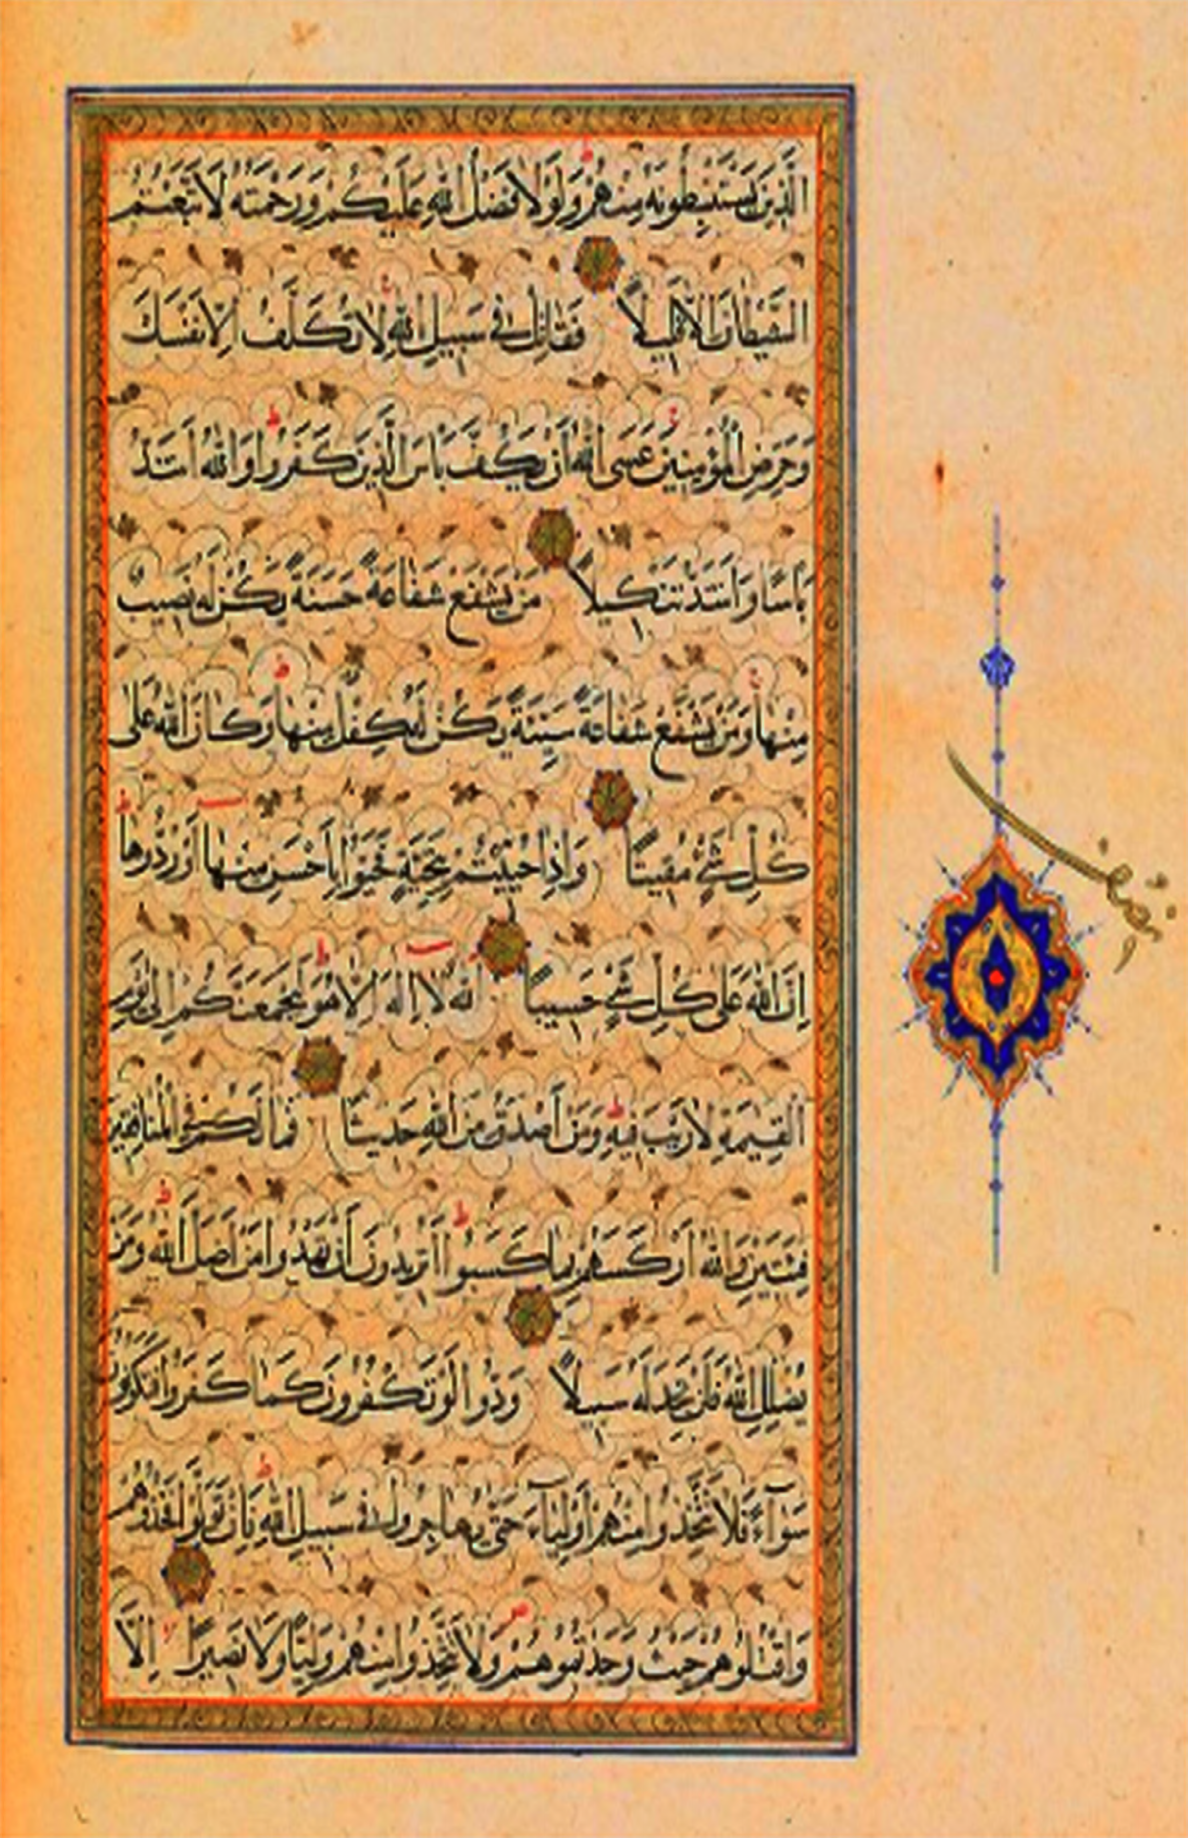 الَّذِينَ يَسْتَنْبِطُونَهُ مِنْهُمْ وَلَوْلَا فَضْلُ اللَّهِ عَلَيْكُمْ وَرَحْمَتُهُ لَاتَّبَعْتُمُ
الشَّيْطَانَ إِلَّا قَلِيلًا فَقَاتِلْ فِي سَبِيلِ اللَّهِ لَا تُكَلَّفُ إِلَّا نَفْسَكَ
وَحَرِّضِ الْمُؤْمِنِينَ عَسَى اللَّهُ أَنْ يَكُفَّ بَأْسَ الَّذِينَ كَفَرُوا وَاللَّهُ أَشَدُّ
بَأْسًا وَأَشَدُّ تَنْكِيلًا مَنْ يَشْفَعْ شَفَاعَةً حَسَنَةً يَكُنْ لَهُ نَصِيبٌ
مِنْهَا وَمَنْ يَشْفَعْ شَفَاعَةً سَيِّئَةً يَكُنْ لَهُ كِفْلٌ مِنْهَا وَكَانَ اللَّهُ عَلَى
كُلِّ شَيْءٍ مُقِيتًا وَإِذَا حُيِّيتُمْ بِتَحِيَّةٍ فَحَيُّوا بِأَحْسَنَ مِنْهَا أَوْ رُدُّوهَا
إِنَّ اللَّهَ عَلَى كُلِّ شَيْءٍ حَسِيبًا اللَّهُ لَا إِلَهَ إِلَّا هُوَ لَيَجْمَعَنَّكُمْ إِلَى يَوْمِ
الْقِيمَةِ لَا رَيْبَ فِيهِ وَمَنْ أَصْدَقُ مِنَ اللَّهِ حَدِيثًا فَمَا لَكُمْ فِي الْمُنَافِقِينَ
فِئَتَيْنِ وَاللَّهُ أَرْكَسَهُمْ بِمَا كَسَبُوا أَتُرِيدُونَ أَنْ تَهْدُوا مَنْ أَضَلَّ اللَّهُ وَمَنْ
يُضْلِلِ اللَّهُ فَلَنْ تَجِدَ لَهُ سَبِيلًا وَدُّوا لَوْ تَكْفُرُونَ كَمَا كَفَرُوا فَتَكُونُونَ
سَوَآءً فَلَا تَتَّخِذُوا مِنْهُمْ أَوْلِيَآءَ حَتَّى يُهَاجِرُوا فِي سَبِيلِ اللَّهِ فَإِنْ تَوَلَّوْا فَخُذُوهُمْ
وَاقْتُلُوهُمْ حَيْثُ وَجَدْتُمُوهُمْ وَلَا تَتَّخِذُوا مِنْهُمْ وَلِيًّا وَلَا نَصِيرًا إِلَّا